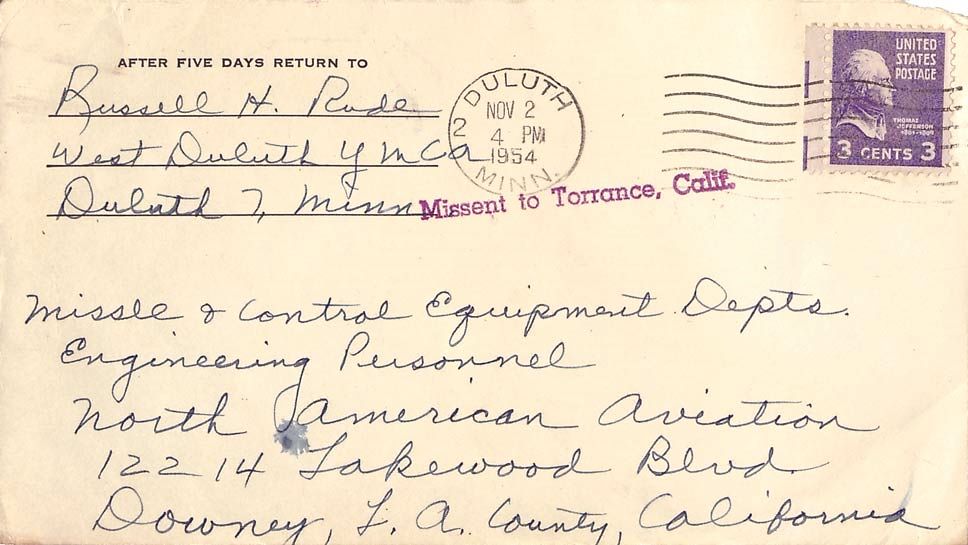 AFTER FIVE DAYS RETURN TO
Russell H. Rude
West Duluth YMCA
Duluth 7, Minn
DULUTH
NOV 2
2
4 PM
1954
MINN.
Missent to Torrance, Calif.
UNITED
STATES
POSTAGE
THOMAS
JEFFERSON
1801-1809
3 CENTS 3
Missle & Control Equipment Depts.
Engineering Personnel
North American Aviation
12214 Lakewood Blvd.
Downey, L. A. County, California